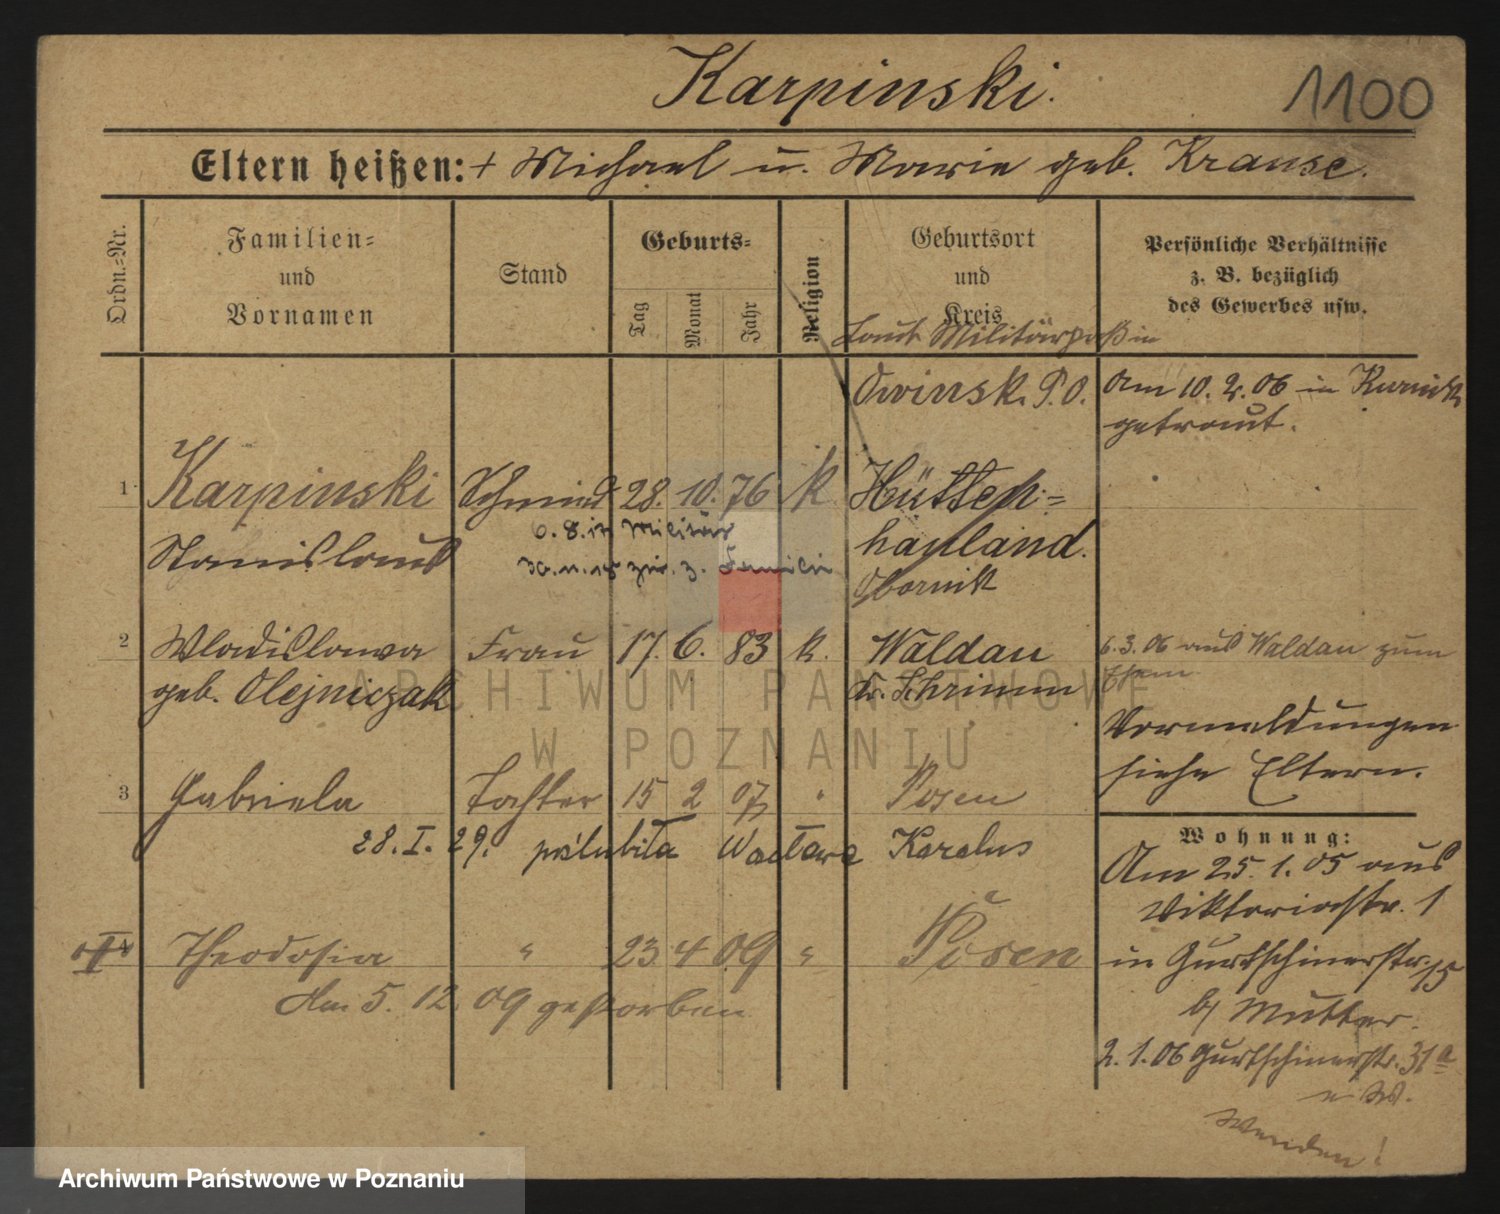 Karpinski.
1100
Eltern heißen: + Michael u. Marie geb. Krause.
Ordn.-Nr.
Familien-
und
Vornamen
Stand
Geburts-
Tag
Monat
Jahr
Religion
Geburtsort
und
Kreis
Persönliche Verhältnisse
z. B. bezüglich
des Gewerbes usw.
Laut Militärpaß in
Owinsk. P.O.
Am 10. 2. 06 in Kurnik
getraut.
1
Karpinski
Stanislaus
Schmied
28. 10. 76
k
Hütten-
hauland.
Obornik
6. 8. in Militär
zur. z. Familie
2
Wladislawa
geb. Olejniczak
Frau
17. 6. 83
k.
Waldau
Kr. Schrimm
6. 3. 06 aus Waldau zum
Ehem
Vormeldungen
siehe Eltern.
3
Gabriela
Tochter
15 2 07
"
Posen
28. I. 29. poślubiła Karalus
Wohnung:
Am 25. 1. 05 aus
Viktoriastr. 1
in Gurtschinerstr. 15
b/ Mutter.
2. 1. 06 Gurtschinerstr. 31a
Wenden!
4
Theodosia
"
23 4 09
"
Posen
Am 5. 12. 09 gestorben
ARCHIWUM PAŃSTWOWE
W POZNANIU
Archiwum Państwowe w Poznaniu